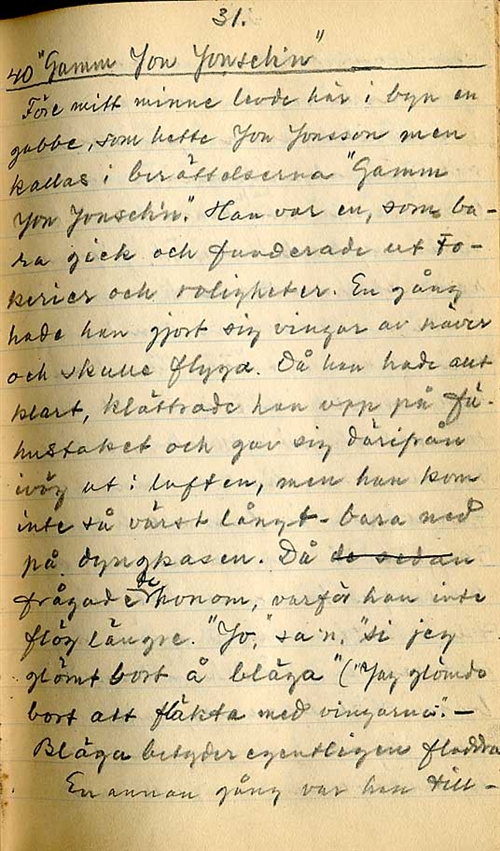 31.
40 "Gamm Yon Yonsch'n"
Före mitt minne levde här i byn en
gubbe, som hette Yon Yonsson men
kallas i berättelserna "Gamm
Yon Yonsch'n." Han var en, som ba-
ra gick och funderade ut To-
kerier och roligheter. En gång
hade han gjort sig vingar av näver
och skulle flyga. Då han hade allt
klart, klättrade han upp på fä-
hustaket och gav sig därifrån
iväg ut i luften, men han kom
inte så värst långt - bara ned
på dyngkasen. Då de sedan
frågade de honom, varför han inte
flög längre. "Yo," sa'n, "si jeg
glömt bort å bläga" ("Yag glömde
bort att fläkta med vingarna". —
Bläga betyder egentligen fladdra
En annan gång var han till-